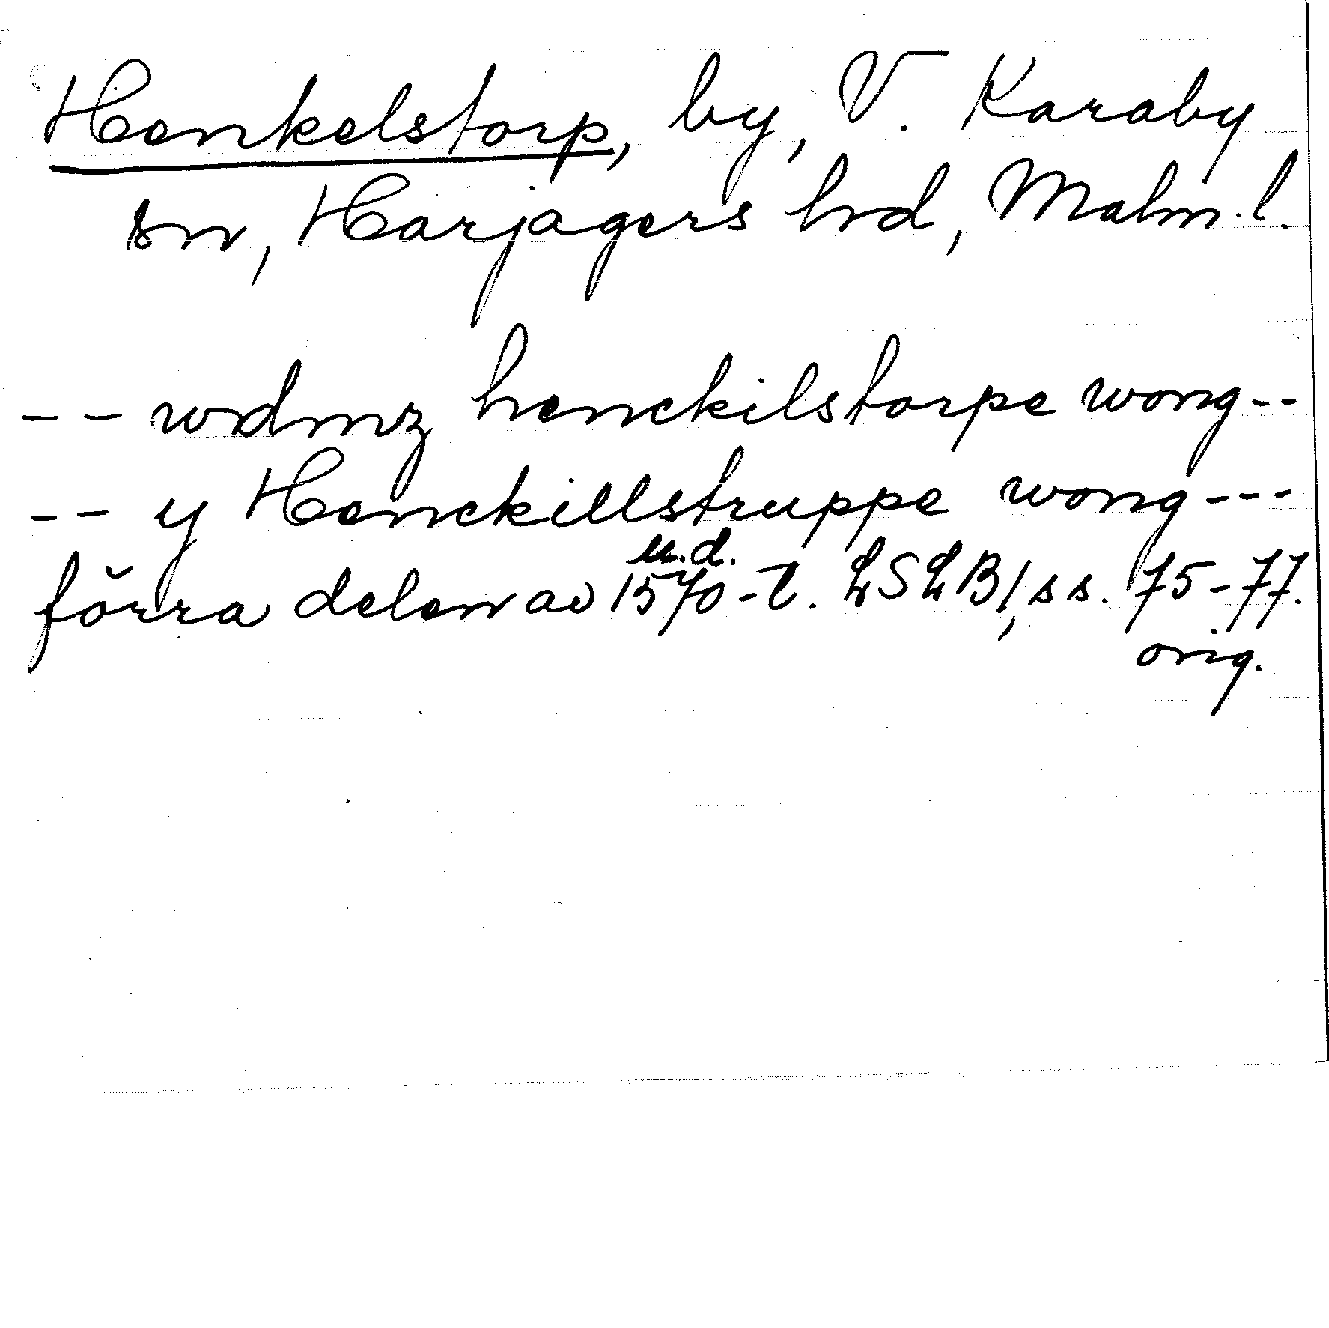 Henkelstorp, by, V. Karaby
sn, Harjagers hrd, Malm. l.
-- wdmz henckilstorpe wong--
-- y Henckillstruppe wong---
u.d.
förra delen av 1570-t. LSLB!, ss. 75-77.
orig.